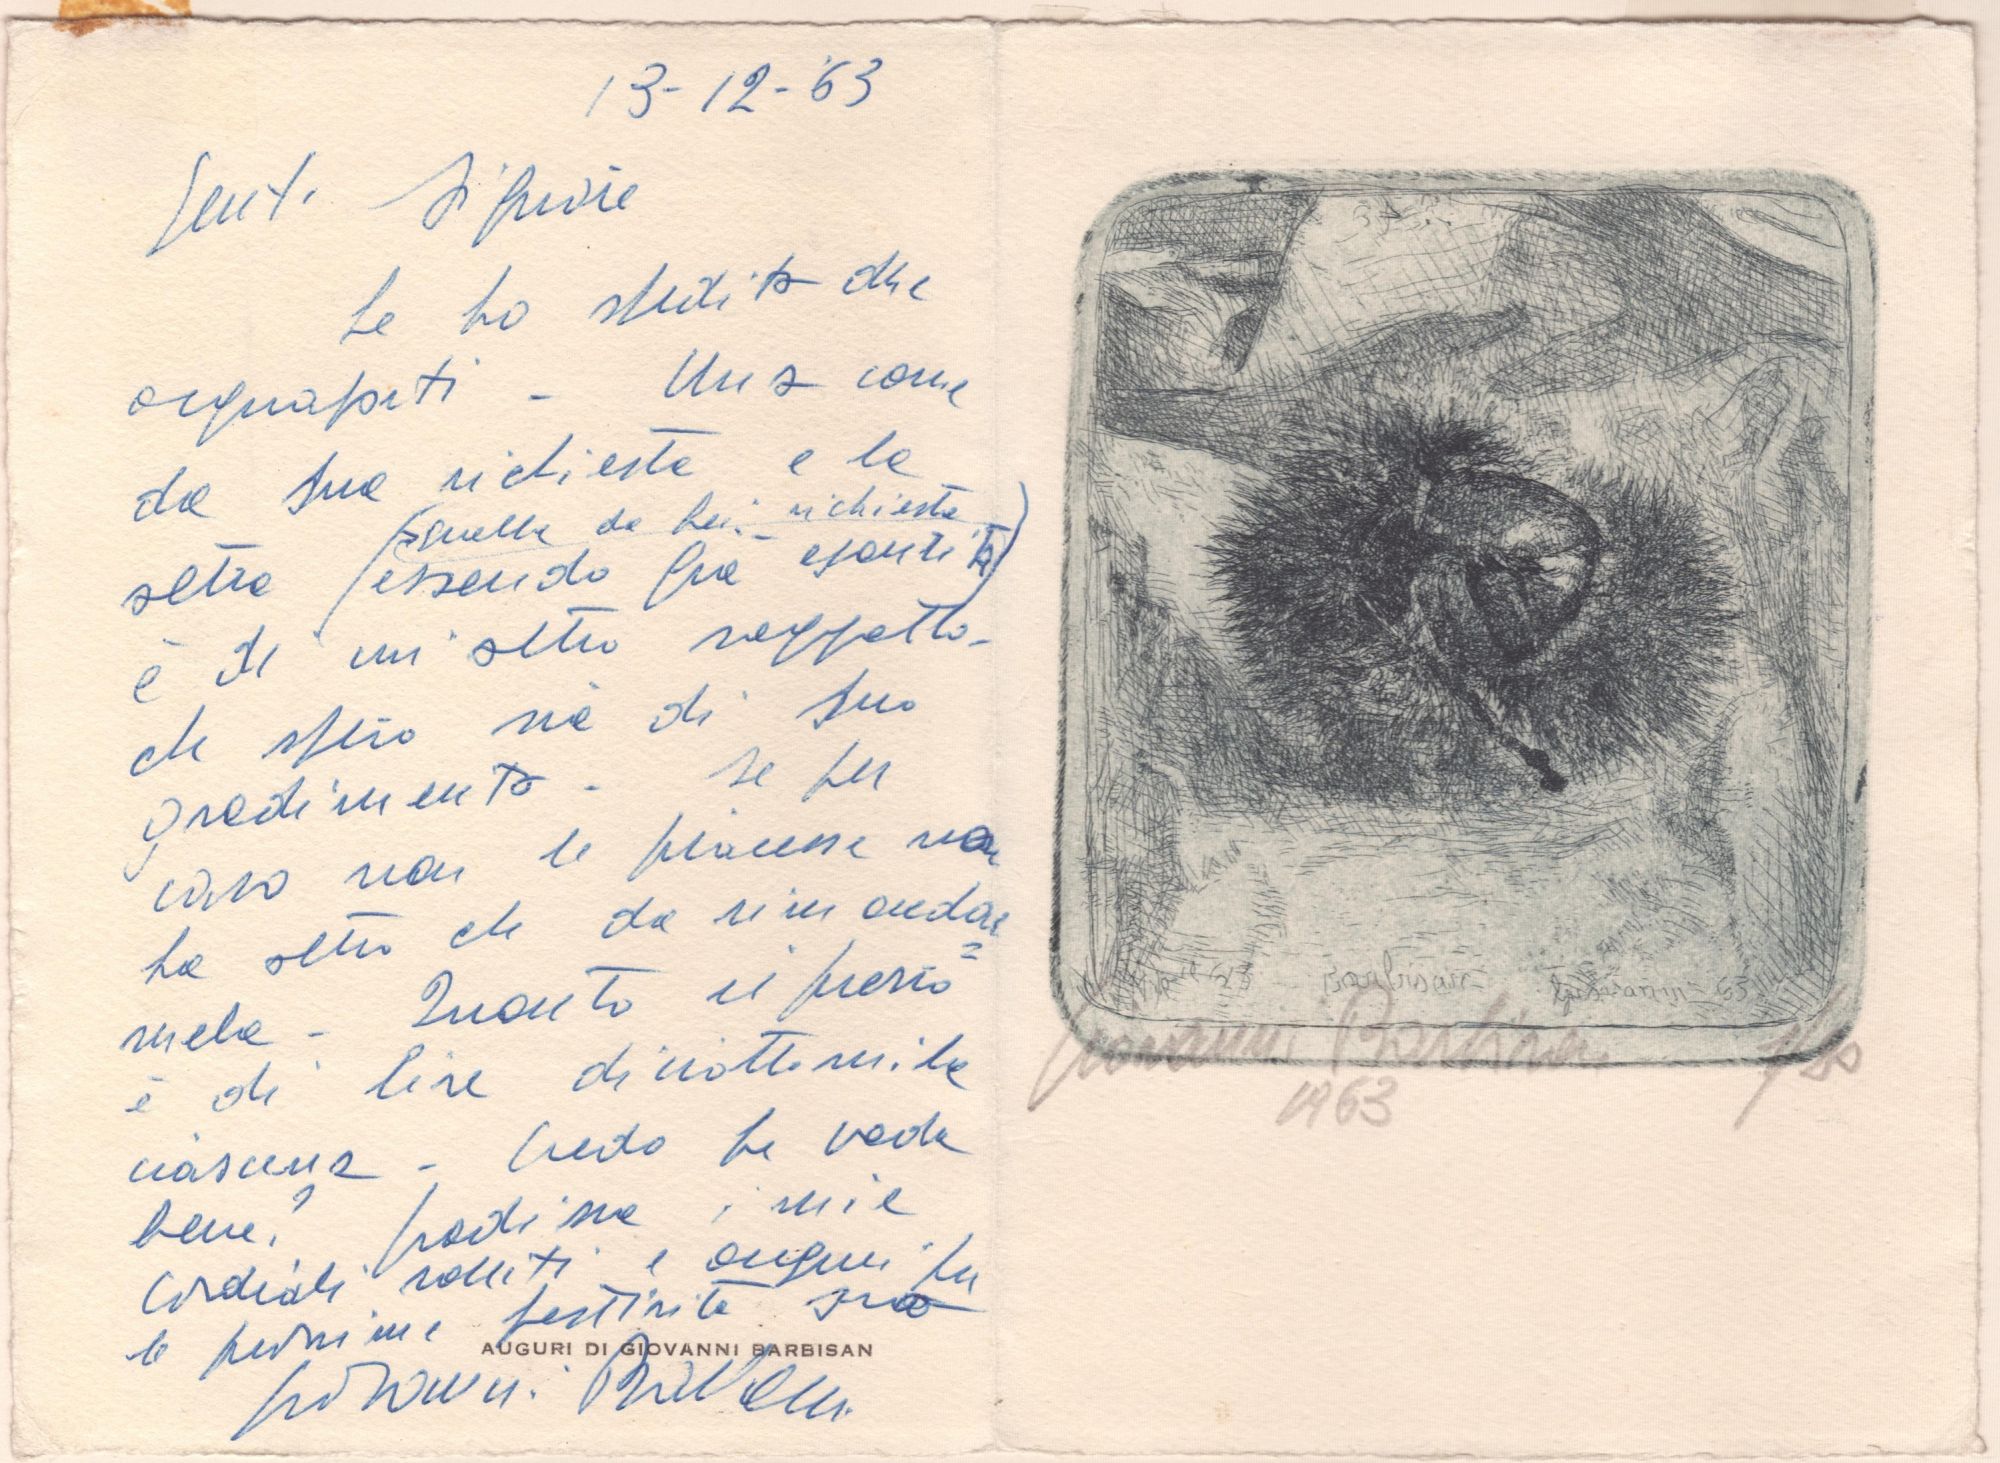 13-12-'63
Gent. Signore
Le ho spedito due
acqueforti - Una come
da sua richiesta e la
altra (essendo già esaurita
quella da Lei richiesta)
è di un altro soggetto -
che spero sia di suo
gradimento - Se per
caso non le piacesse non
ha altro che da rimandar=
mela - Quanto il prezzo
è di lire diciottomila
ciascuna - Credo Le vada
bene? Gradisca i miei
cordiali saluti e auguri per
le prossime festività suo
AUGURI DI GIOVANNI BARBISAN
Giovanni Barbisan
Barbisan
63
Giovanni Barbisan
1963